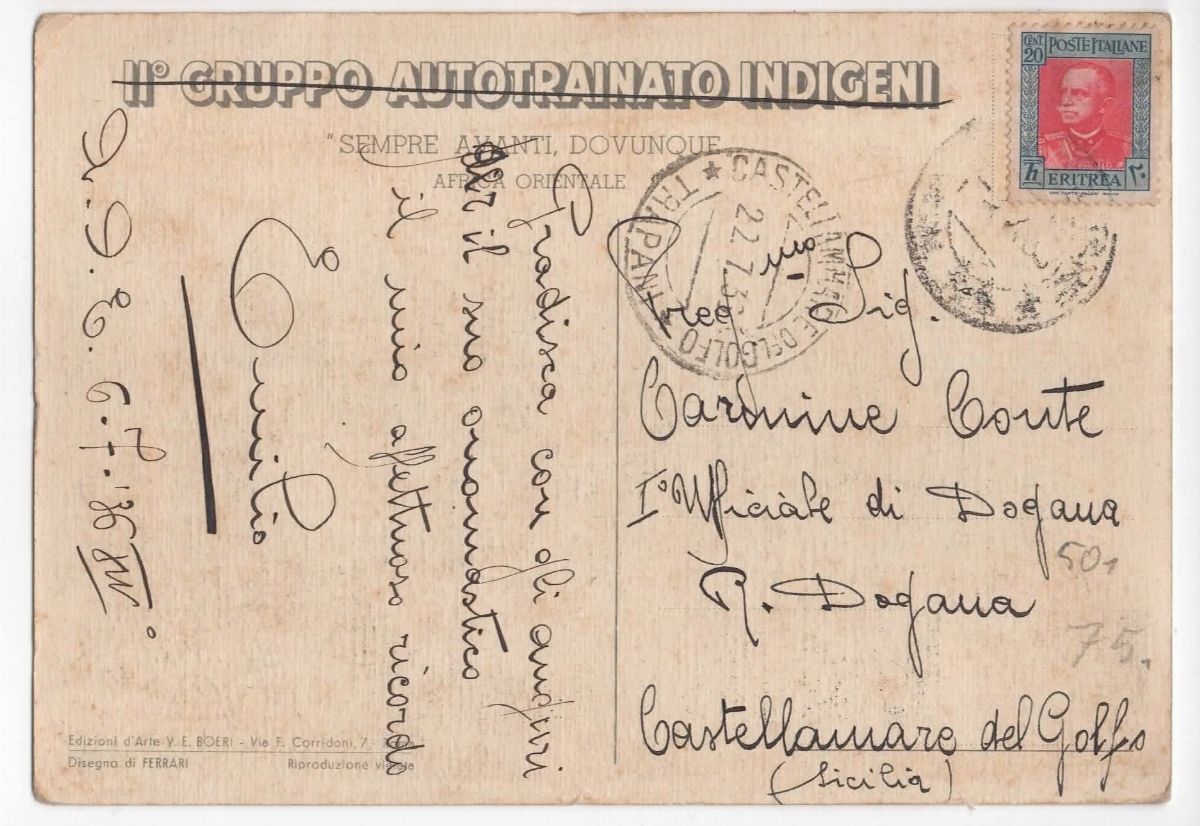 II° GRUPPO AUTOTRAINATO INDIGENI
"SEMPRE AVANTI, DOVUNQUE
AFRICA ORIENTALE
CENT. 20 POSTE ITALIANE
ERITREA ٢٠
CASTELLAMMARE DEL GOLFO
22.7.3
* TRAPANI
Gradisca con gli auguri
per il suo onomastico
il mio affettuoso ricordo
Emilio
6.7.'36 XIV°
Preg.mo Sig.
Carmine Conte
I° Ufficiale di Dogana
R. Dogana
Castellamare del Golfo
(Sicilia)
50
75.
Edizioni d'Arte V. E. BOERI - Via F. Corridoni, 7 -
Disegno di FERRARI
Riproduzione vietata